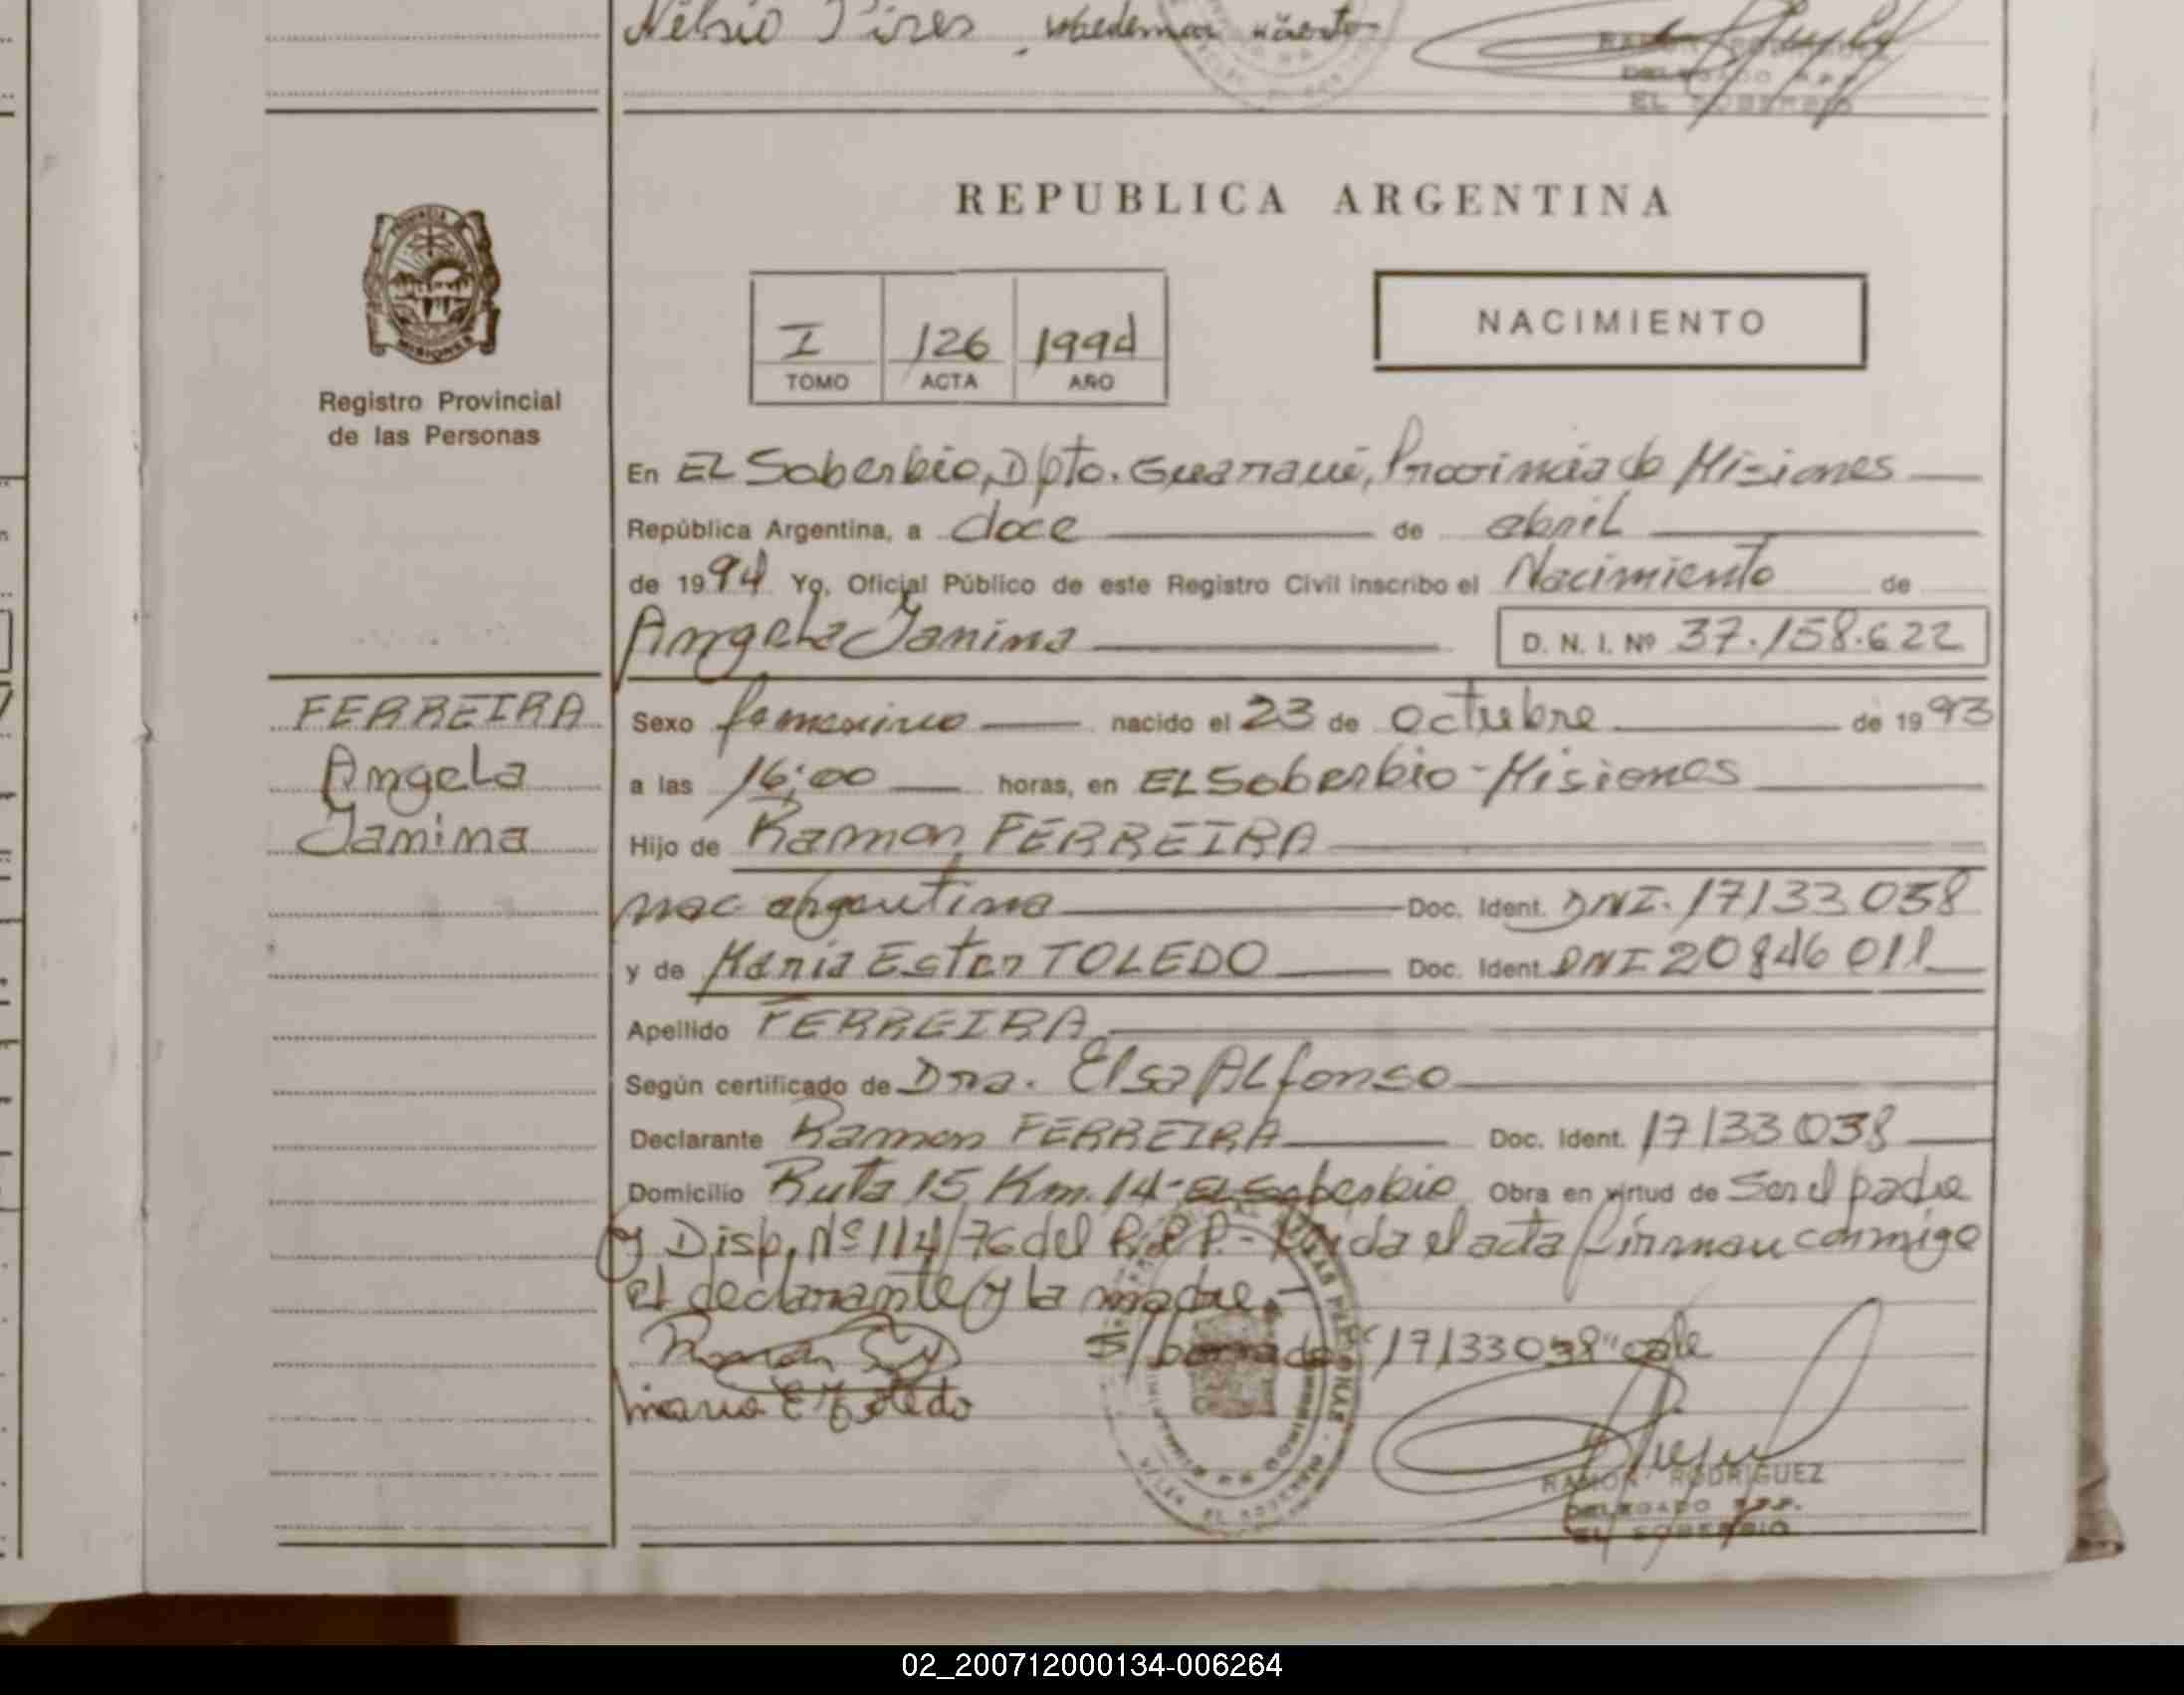 Nelsio Pires
EL SOBERBIO
REPUBLICA ARGENTINA
PROVINCIA
MISIONES
I 126 1994
TOMO ACTA AÑO
NACIMIENTO
Registro Provincial
de las Personas
En EL Soberbio, Dpto. Guaraní, Provincia de Misiones
República Argentina, a doce de abril
de 1994 Yo, Oficial Público de este Registro Civil inscribo el Nacimiento de
Angela Janina D. N. I. Nº 37.158.622
FERREIRA
Angela
Janina
Sexo femenino nacido el 23 de octubre de 1993
a las 16:00 horas, en EL Soberbio - Misiones
Hijo de Ramon FERREIRA
nac argentina Doc. Ident. DNI. 17133038
y de Maria Ester TOLEDO Doc. Ident. DNI 20846011
Apellido FERREIRA
Según certificado de Dra. Elsa ALfonso
Declarante Ramon FERREIRA Doc. Ident. 17133038
Domicilio Ruta 15 Km. 14 - EL Soberbio Obra en virtud de Ser el padre
y Disp. Nº 114/76 del R.P.P. - Leida el acta firman conmigo
el declarante y la madre. -
S/borrado "17133038" vale
Maria E Toledo
RAMON RODRIGUEZ
DELEGADO R.P.P.
EL SOBERBIO
02_200712000134-006264